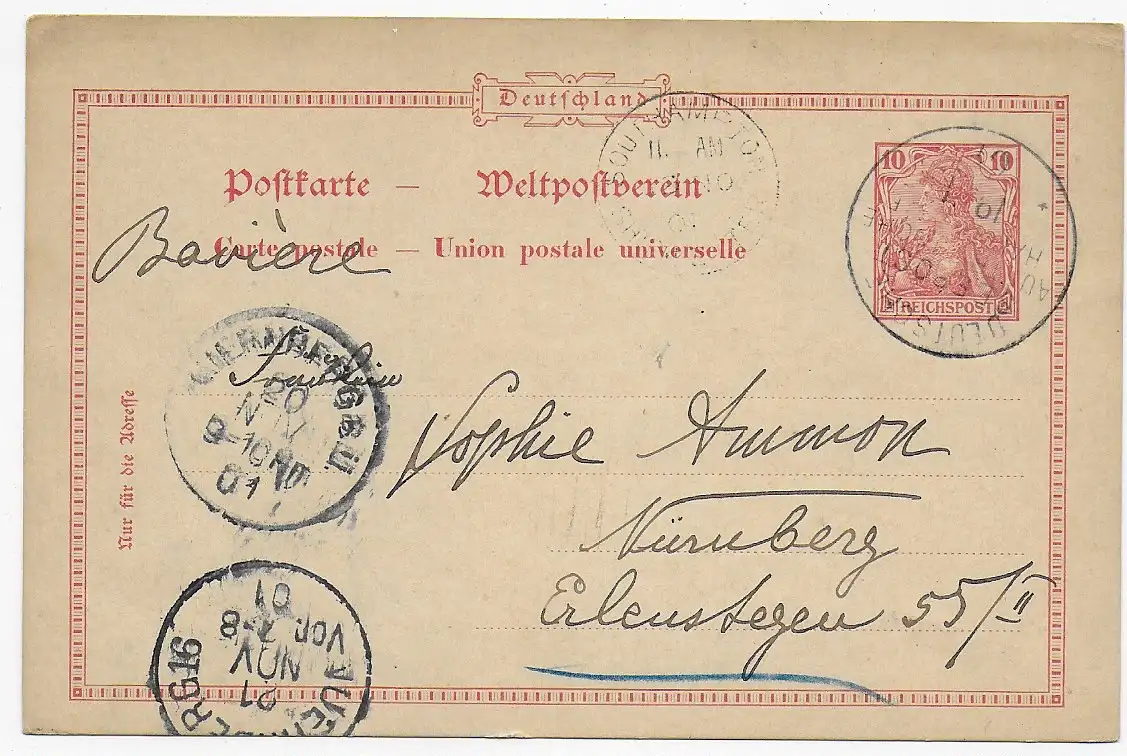 Deutschland
Postkarte — Weltpostverein
Carte postale — Union postale universelle
Bavière
10 10
REICHSPOST
SOUTHAMPTON
11. AM
NO
01
DEUTSCHE
Nur für die Adresse
NUERNBERG 8.Ü.
20
NOV
9-10
01
Sophie Ammon
Nürnberg
Erlenstegen 55/II
NUERNBERG 16
21
NOV
Vor. 7-8
01